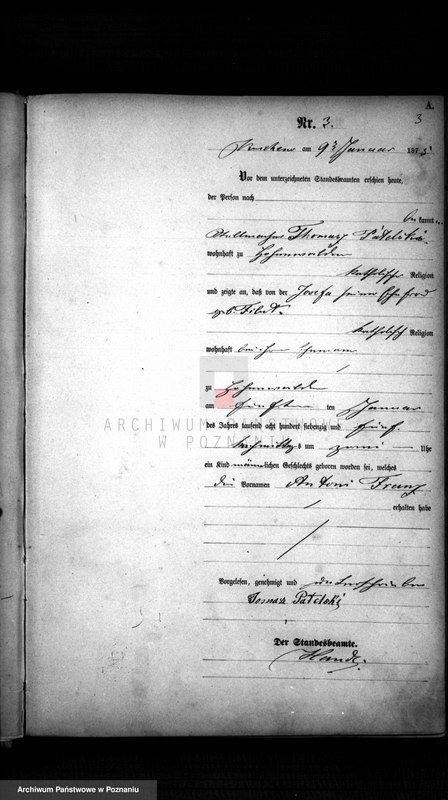 A.
3
Nr. 3.
am 9ten Januar 1875
Vor dem unterzeichneten Standesbeamten erschien heute,
der Person nach
bekannt,
Stellmacher Thomas Patelski
wohnhaft zu Hohenwalde
katholischer Religion
und zeigte an, daß von der Josefa seiner Ehefrau
geb.
katholisch Religion
wohnhaft bei ihrem Ehemann
zu Hohenwalde
am fünften ten Januar
des Jahres tausend acht hundert siebenzig und fünf
Nachmittags um zwei Uhr
ein Kind männlichen Geschlechts geboren worden sei, welches
die Vornamen Antoni Franz
erhalten habe
Vorgelesen, genehmigt und unterschrieben
Tomasz Patelski
Der Standesbeamte.
ARCHIWUM PAŃSTWOWE
W POZNANIU
Archiwum Państwowe w Poznaniu